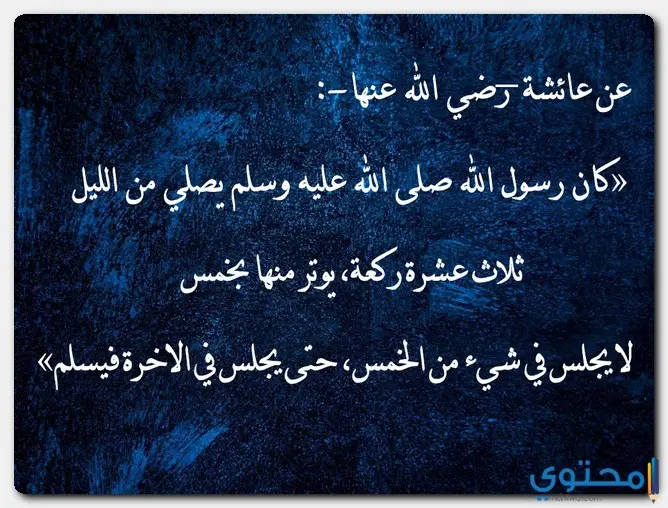 عن عائشة –رضي الله عنها–:
«كان رسول الله صلى الله عليه وسلم يصلي من الليل
ثلاث عشرة ركعة، يوتر منها بخمس
لا يجلس في شيء من الخمس، حتى يجلس في الاخرة فيسلم»
محتوي